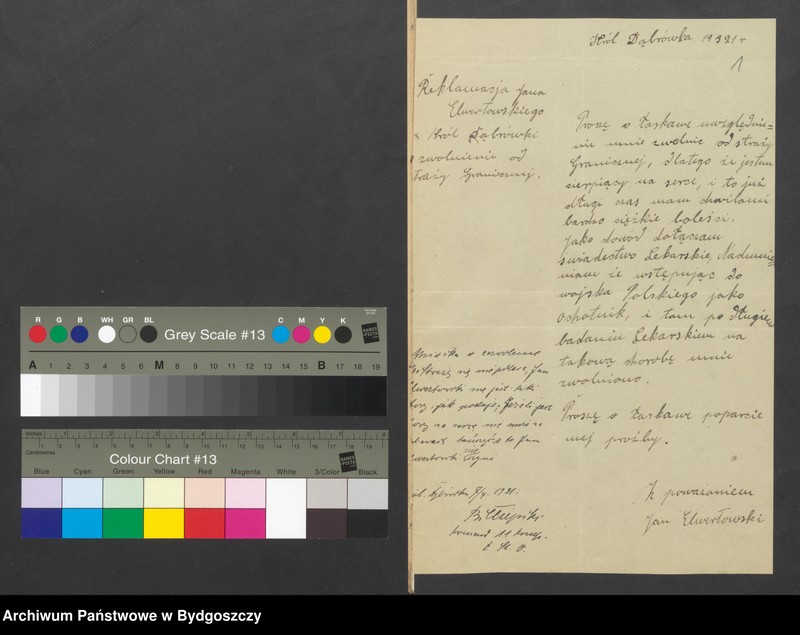 R G B WH GR BL
Grey Scale #13
C M Y K
A 1 2 3 4 5 6 M 8 9 10 11 12 13 14 15 B 17 18 19
Inches
Centimetres
Colour Chart #13
Blue Cyan Green Yellow Red Magenta White 3/Color Black
Król Dąbrówka 1921 r
1
Reklamacja Jana
Elwertowskiego
z Król Dąbrówki
zwolnienie od
Straży Granicznej.
Proszę o łaskawe uwzględnie=
nie mnie zwolnić od straży
Granicznej, dlatego że jestem
cierpiący na serce, i to już
długi czas mam chwilami
bardzo ciężkie boleści.
Jako dowód dołączam
świadectwo Lekarskie, Nadmie=
niam że wstępując do
wojska Polskiego jako
ochotnik, i tam po długie
badaniu Lekarskiem na
takową chorobę mnie
zwolniono.
Proszę o łaskawe poparcie
mej prośby.
Z poważaniem
Jan Elwertowski
Straży nie popieram, Jan
Elwertowski nie jest tak
chory, jak podaje, Jeżeli jest
chory na serce nie może na
to Jan
Elwertowski
1921.
komend 11
Archiwum Państwowe w Bydgoszczy